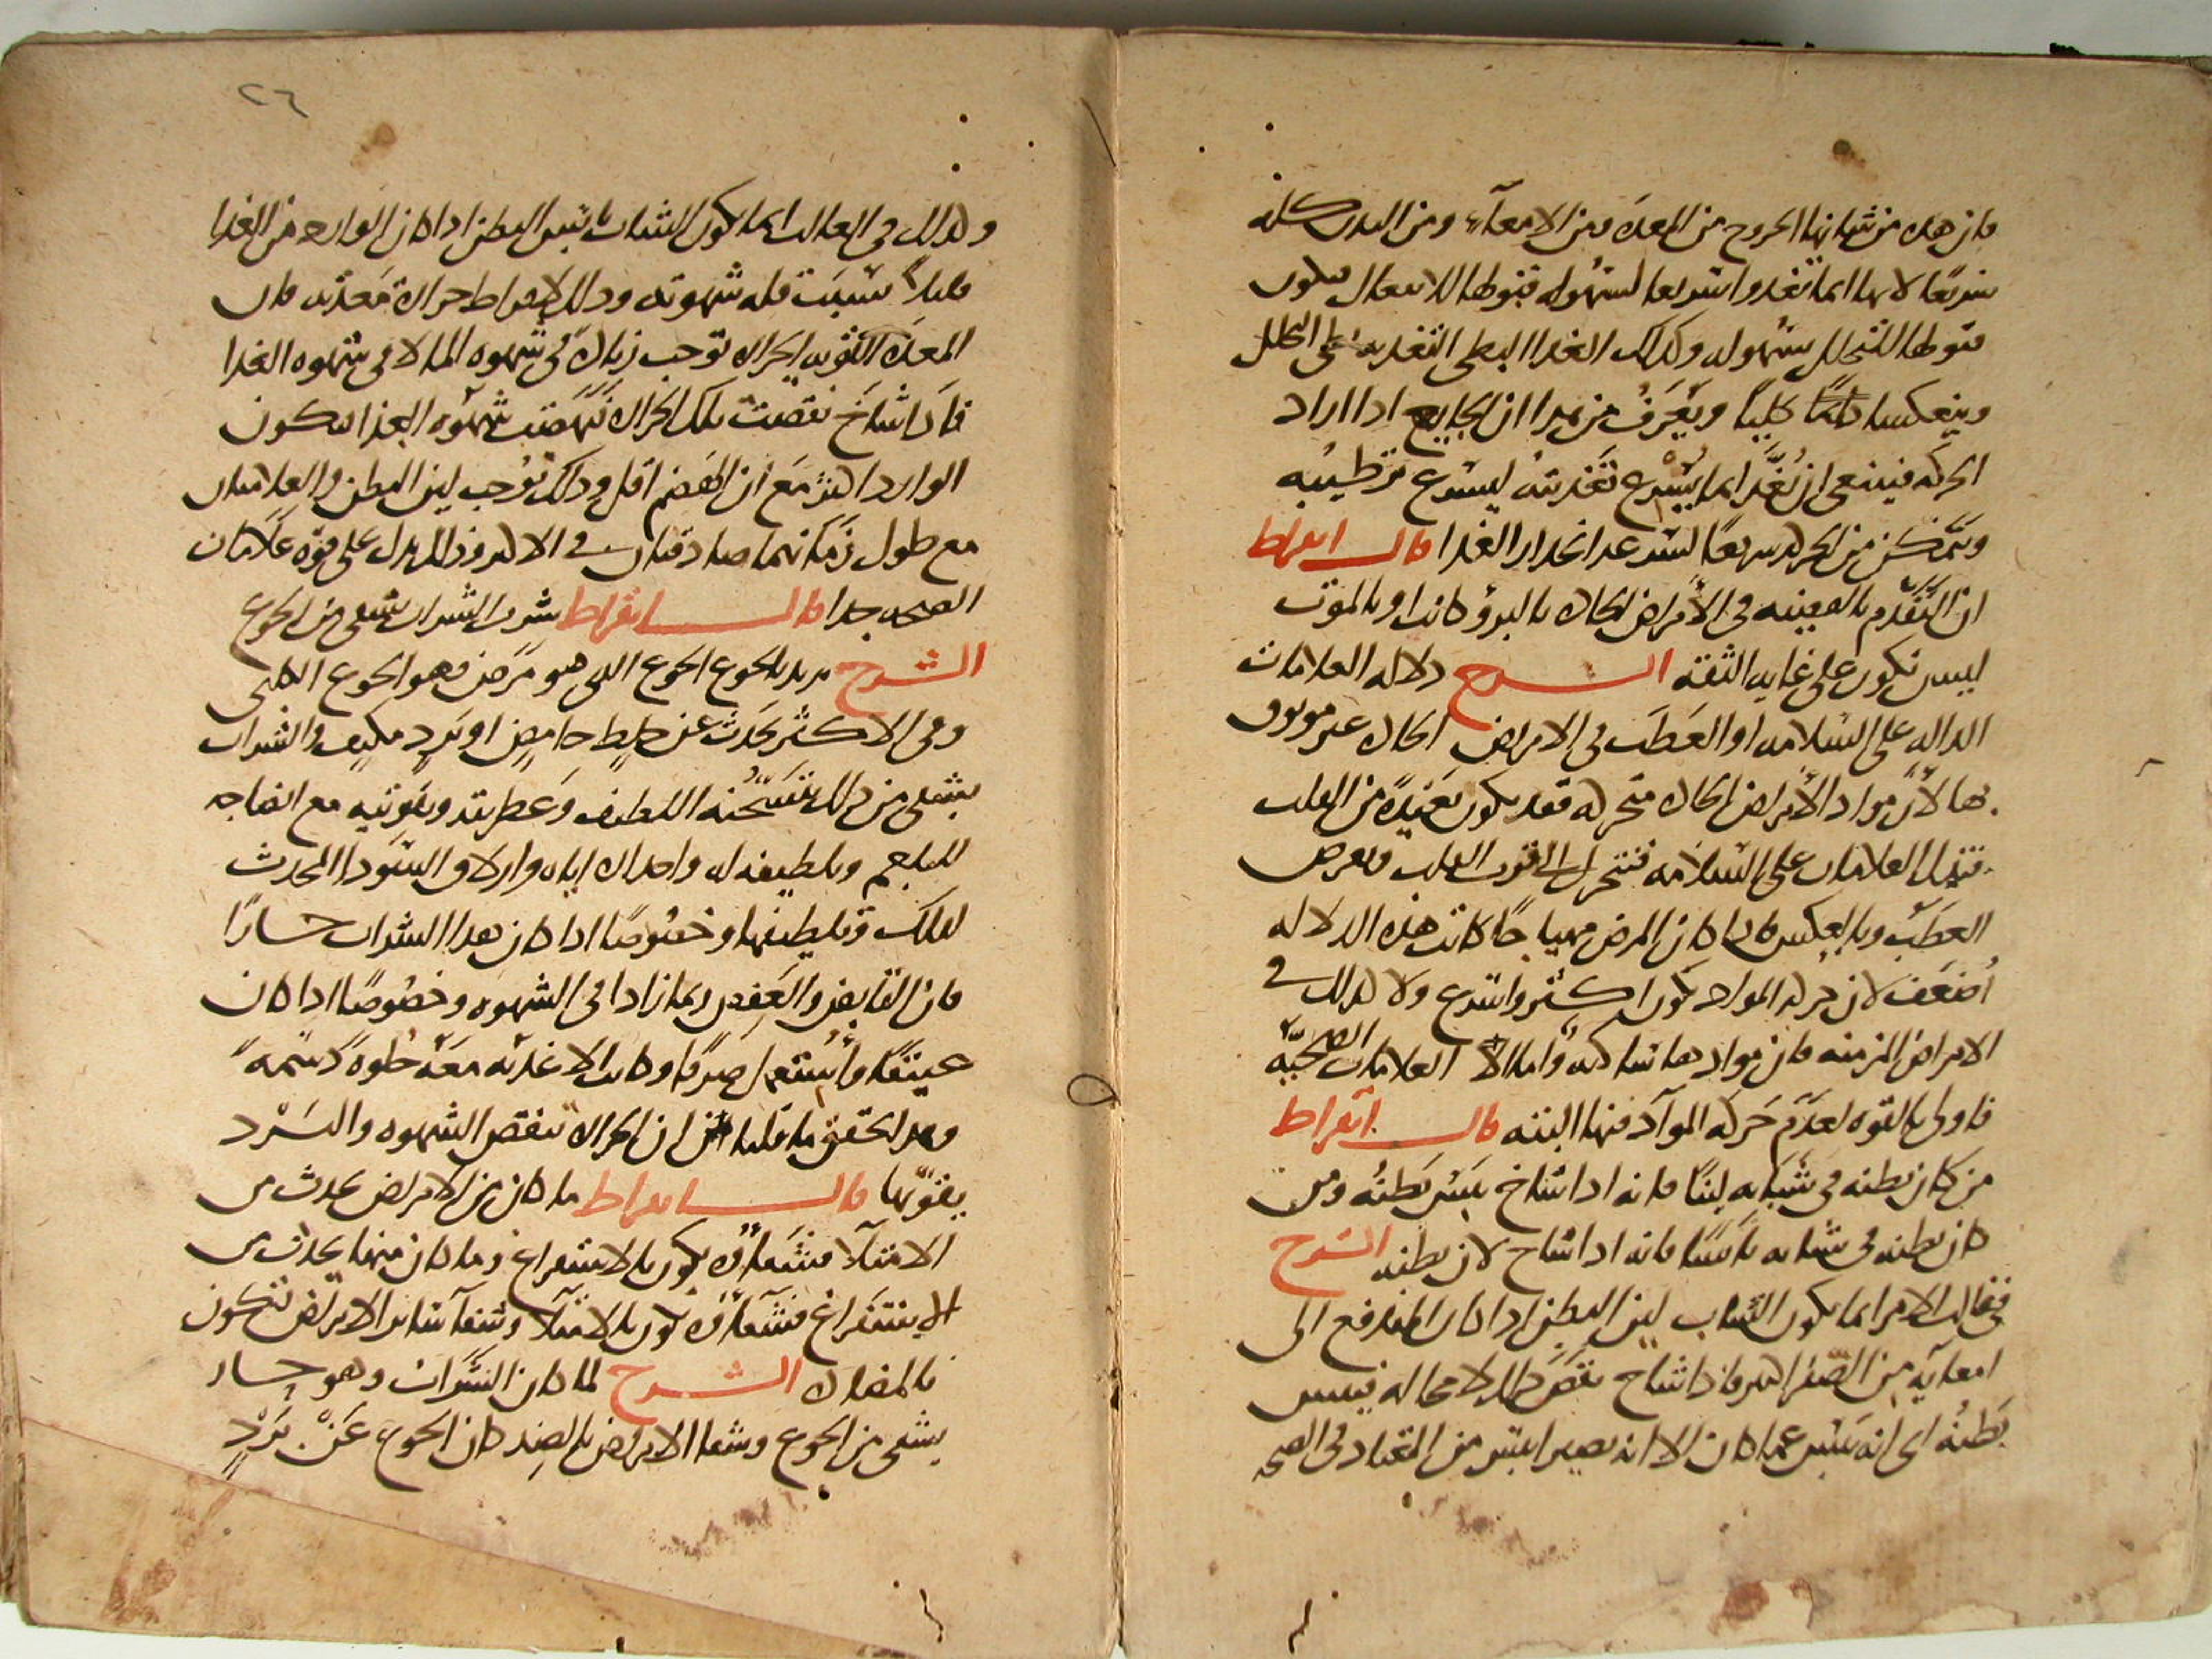 فان هذه من شانها الخروج من المعدة ومن الامعآء ومن البدن كله
سريعًا لانها انما تغذوا سريعا لسهوله قبولها للانفعال فيكون
قبولها للتحلل بسهوله وكذلك الغذا البطى التغذيه بطى التحلل
وينعكسان عكسًا كليًا ويعرف من هذا ان الجايع اذا اراد
الحركه فينبغى ان يُغذَّا بما يُسرع تغذيته ليسرع ترطيبه
ويتمكن من الحركه سريعًا لسرعه انحدار الغذا قال ابقراط
ان التقدّم بالقضيه فى الأمراض الحاده بالبرؤ كانت او بالموت
ليس تكون على غايه الثقه الشرح دلاله العلامات
الداله على السّلامه او العَطَب فى الامراض الحاده غير موثوق
بها لأنّ مواد الأمراض الحاده متحركه فقد يكون بَعيدَةً من القلب
فتدل العلامات على السّلامه فتتحرك الى قرب القلب فيعرض
العَطَبُ وبالعكس فاذا كان المرض مهياجًا كانت هذه الدلاله
أضعَفَ لان حركه المواد تكون اكثر واسرع ولا كذلك فى
الامراض المزمنه فان موادها ساكنه واما العلامات الصحيّه
فاولى بالقوه لعدَم حَركه الموآد فيها البته قال ابقراط
من كان بطنه فى شبابه لينًا فانه اذا شاخ يبس بَطنُه ومن
كان بطنه فى شبابه يابسًا فانه اذا شاخ لان بطنه الشرح
فى غالب الامر انما يكون الشاب لين البطن اذا كان المندفع الى
امعايه من الصفرا كثير فاذا شاخ نقصَ ذلك لا محاله فيبس
بَطنُه اى انه يَبس عما كان الا انه يصير ايبس من المعتاد فى الصحه
٢٦
وكذلك فى الغالب انما يكون الشاب يابس البطن اذا كان الوارد من الغذا
قليلاً بسبَب قله شهوته وذلك لافراط حراره مَعدته فان
المعدَه القويه الحراره توجب زياده فى شهوه الما لا فى شهوه الغذا
فاذا شاخَ نقصت تلك الحراره نهَضَت شهوَه الغذا فيكون
الوارد اكثر مَع ان الهَضم اقل وذلك يُوجب لين البطن والعلامتان
مع طول زمَانهما صادقتان فى الاكثر وذلك يدل على قوه علامات
الصحه جدا قال ابقراط شرب الشراب يشفى من الجوع
الشرح يريد بالجوع الجوع الذى هو مَرَض وهو الجوع الكلبى
وفى الاكثر يَحدث عن خِلطٍ حَامِضٍ او بَردٍ مكيفٍ والشراب
يشفى من ذلك بتسَخُّنه اللطيف وعَطريته وتقويته مع انضاجه
للبلغم وتلطيفه له واحداره اياه وازلاق السَودا المحدث
لذلك وتلطيفها وخصُوصًا اذا كان هذا الشراب حارًا
فان القابض والعَفِص ربما زادا فى الشهوه وخصُوصًا اذا كان
عتيقًا واستُعمِل صِرفًا وكانت الاغذيه معَه حُلوَةً دَسَمهً
وهذا يحقق ما قلنا من ان الحراره تنقص الشهوه والبَرْد
يقوّيها قال ابقراط ما كان من الامراض يحدث من
الامتلآ فشَفاؤُه يكون بالاستفراغ وما كان منها يحدث من
الاستفراغ فشَفاؤُه يكون بالامتلآ وشفآ سَاير الامراض تكون
بالمضاده الشرح لما كان الشَراب وهو حار
يشفى من الجوع وشفا الامراض بالضِد كان الجوع عَنْ بَرْدٍ